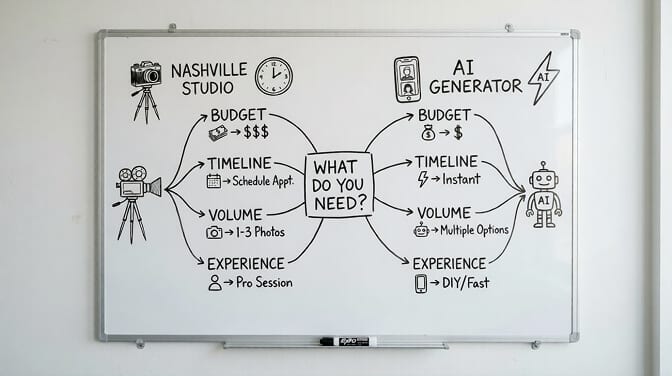 NASHVILLE
STUDIO
BUDGET
→ $$$
TIMELINE
→ Schedule Appt.
VOLUME
→ 1-3 Photos
EXPERIENCE
→ Pro Session
WHAT
DO YOU
NEED?
AI
GENERATOR
AI
BUDGET
→ $
TIMELINE
→ Instant
VOLUME
→ Multiple Options
EXPERIENCE
→ DIY/Fast
AI
EXPO